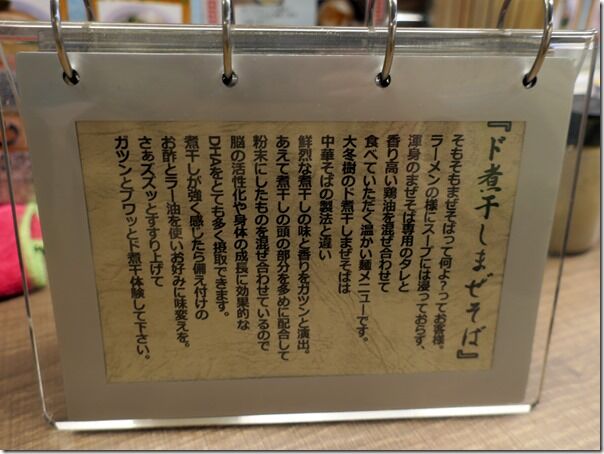 『ド煮干しまぜそば』
そもそもまぜそばって何よ?ってお客様。
ラーメンの様にスープには浸っておらず、
渾身のまぜそば専用のタレと
香り高い鶏油を混ぜ合わせて
食べていただく温かい麺メニューです。
大冬樹のド煮干しまぜそばは
中華そばの製法と違い
鮮烈な煮干しの味と香りをガツンと演出。
あえて煮干しの頭の部分を多めに配合して
粉末にしたものを混ぜ合わせているので
脳の活性化や身体の成長に効果的な
DHAをとても多く摂取できます。
煮干しが強く感じたら備え付けの
お酢とラー油を使いお好みに味変えを。
さぁズズッとすすり上げて
ガツンとブワッとド煮干体験して下さい。